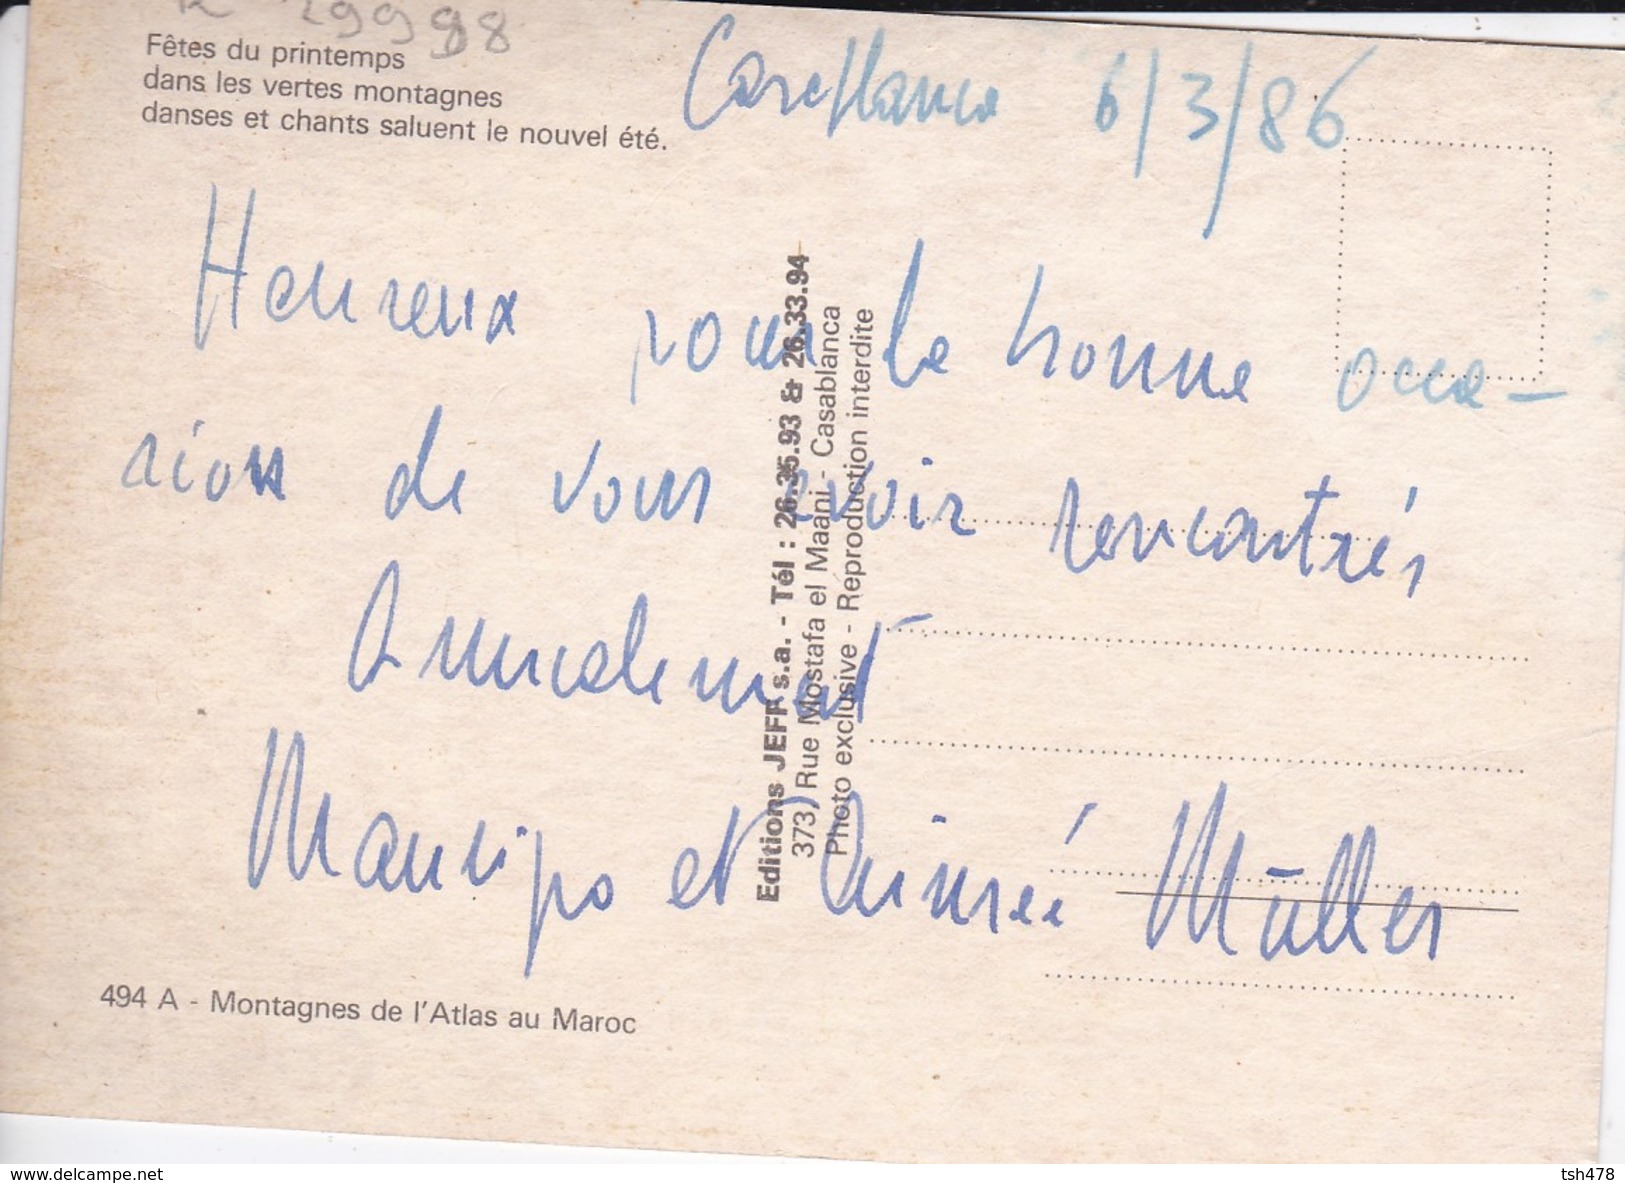 29998
Fêtes du printemps
dans les vertes montagnes
danses et chants saluent le nouvel été.
Casablanca 6/3/86
Heureux pour la bonne occa-
sion de vous avoir rencontrés
Amicalement
et Aimée Müller
Editions JEFF s.a. - Tél : 26.35.93 & 26.33.94
373, Rue Mostafa el Maani - Casablanca
Photo exclusive - Reproduction interdite
494 A - Montagnes de l'Atlas au Maroc
www.delcampe.net
tsh478